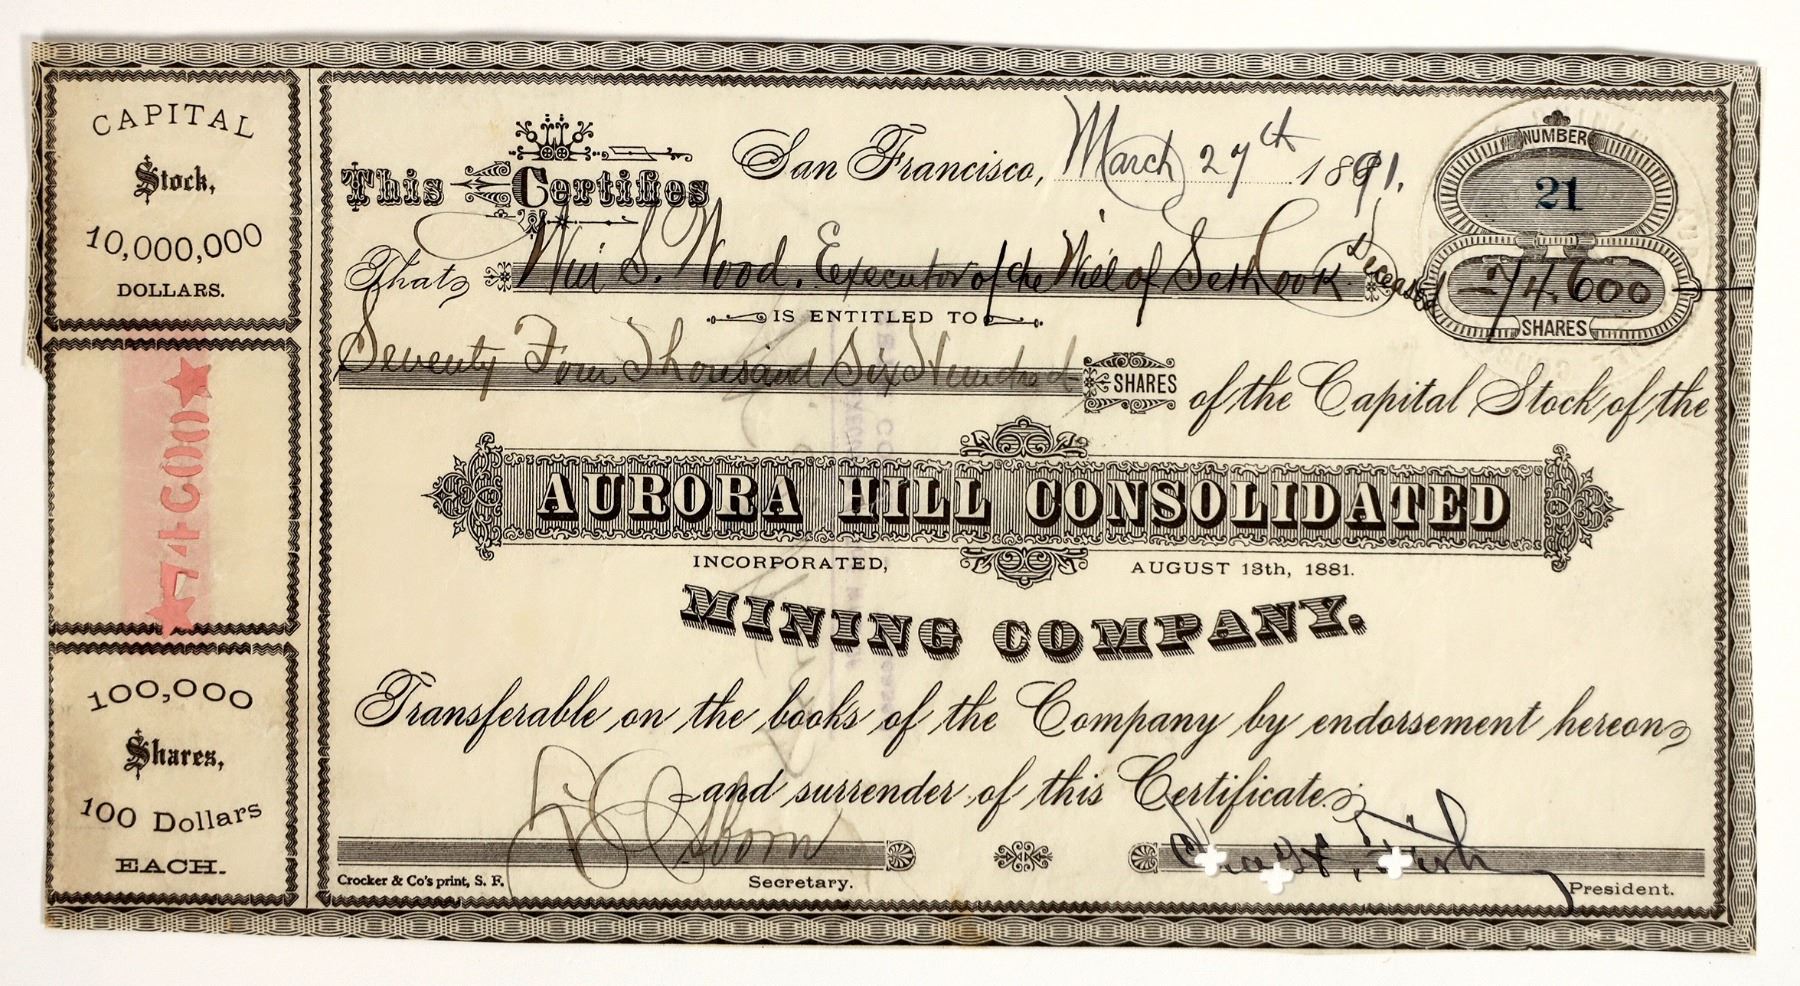 CAPITAL
Stock,
10,000,000
DOLLARS.
74600
100,000
Shares,
100 Dollars
EACH.
This Certifies
San Francisco, March 27th 1891.
NUMBER
21
That Wm S. Wood. Executor of the Will of Seth Cook Deceased
74.600
SHARES
IS ENTITLED TO
Seventy Four Thousand Six Hundred SHARES of the Capital Stock of the
AURORA HILL CONSOLIDATED
INCORPORATED, AUGUST 13th, 1881.
MINING COMPANY.
Transferable on the books of the Company by endorsement hereon
and surrender of this Certificate.
Osborn
Crocker & Co's print, S. F.
Secretary.
President.